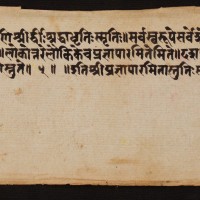 श्रीर्हीःश्रद्धाधृतिःस्मृतिः॥सर्वस्वरूपेसर्वे
॥लोकोत्तरेलौकिकेचप्रज्ञापारमितेमिते॥
स्तुते॥५॥॥इतिश्रीप्रज्ञापारमितास्तुतिः